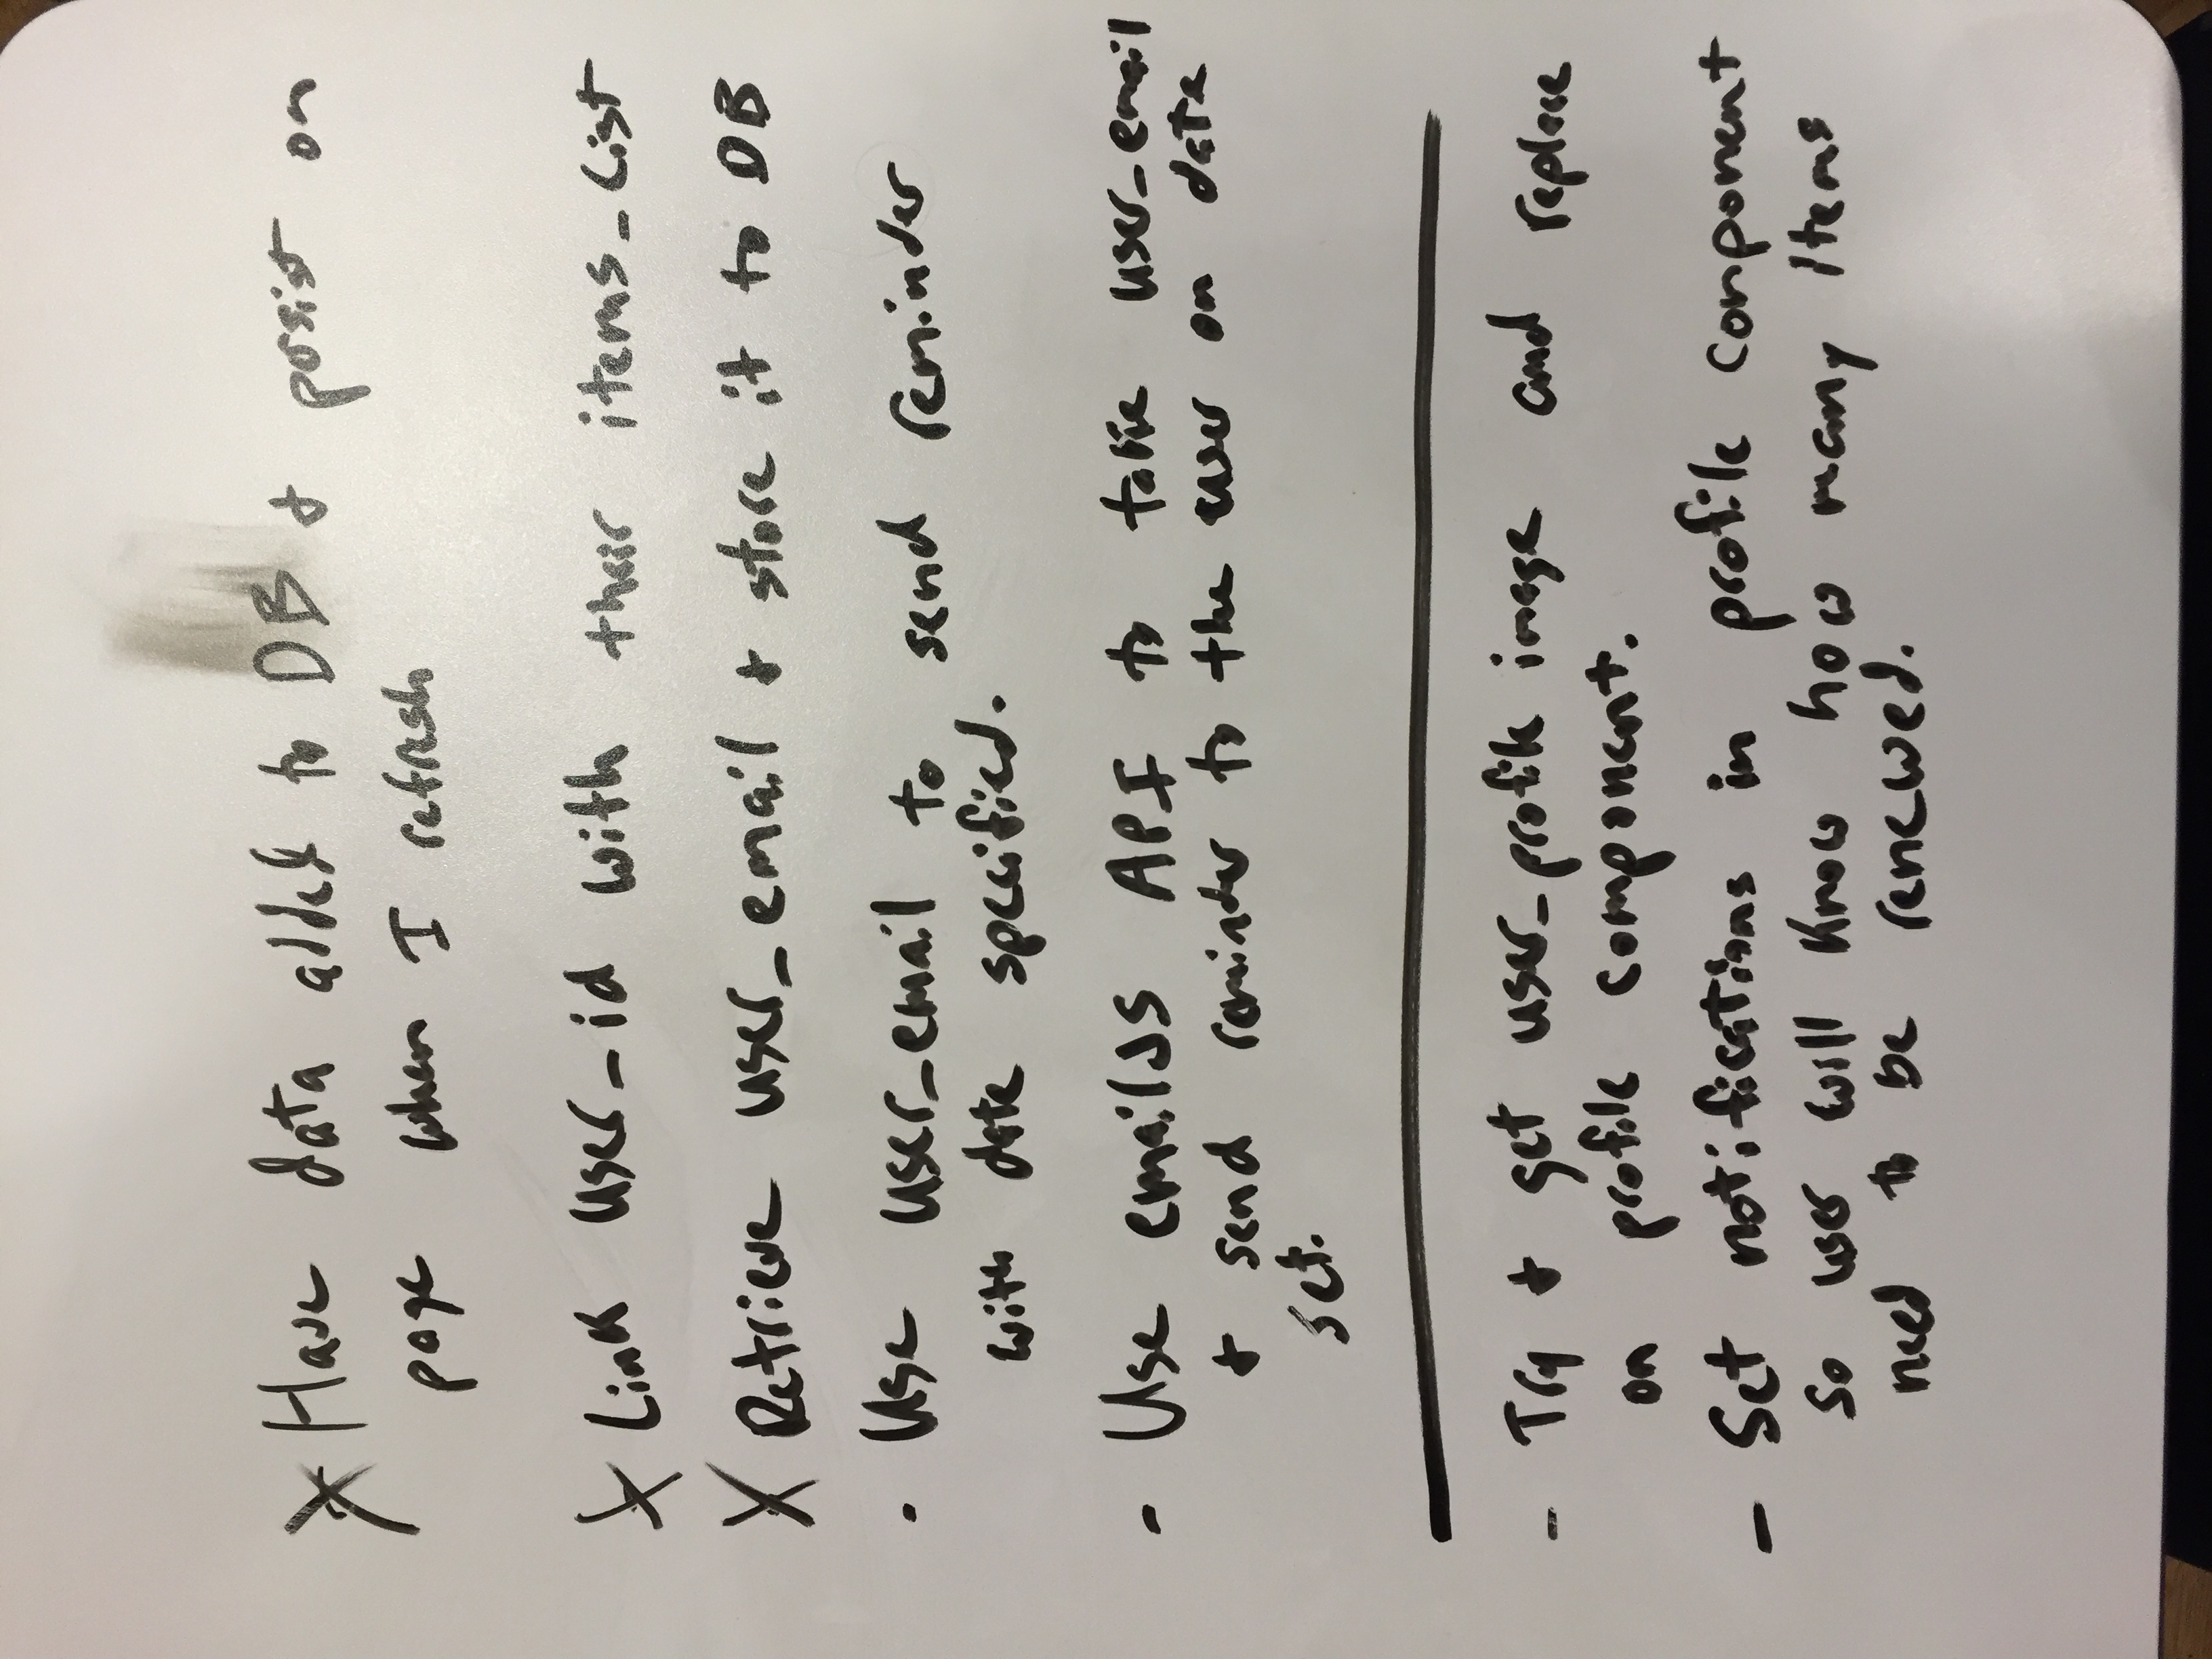 X Have data added to DB + persist on
page when I refresh
X Link user_id with their items_list
X Retrieve user_email + store it to DB
· Use user_email to send reminder
with date specified.
- Use emailJS API to take user_email
+ send reminder to the user on date
set.
- Try + get user_profile image and replace
on profile component.
- Set notifications in profile component
so user will know how many items
need to be renewed.